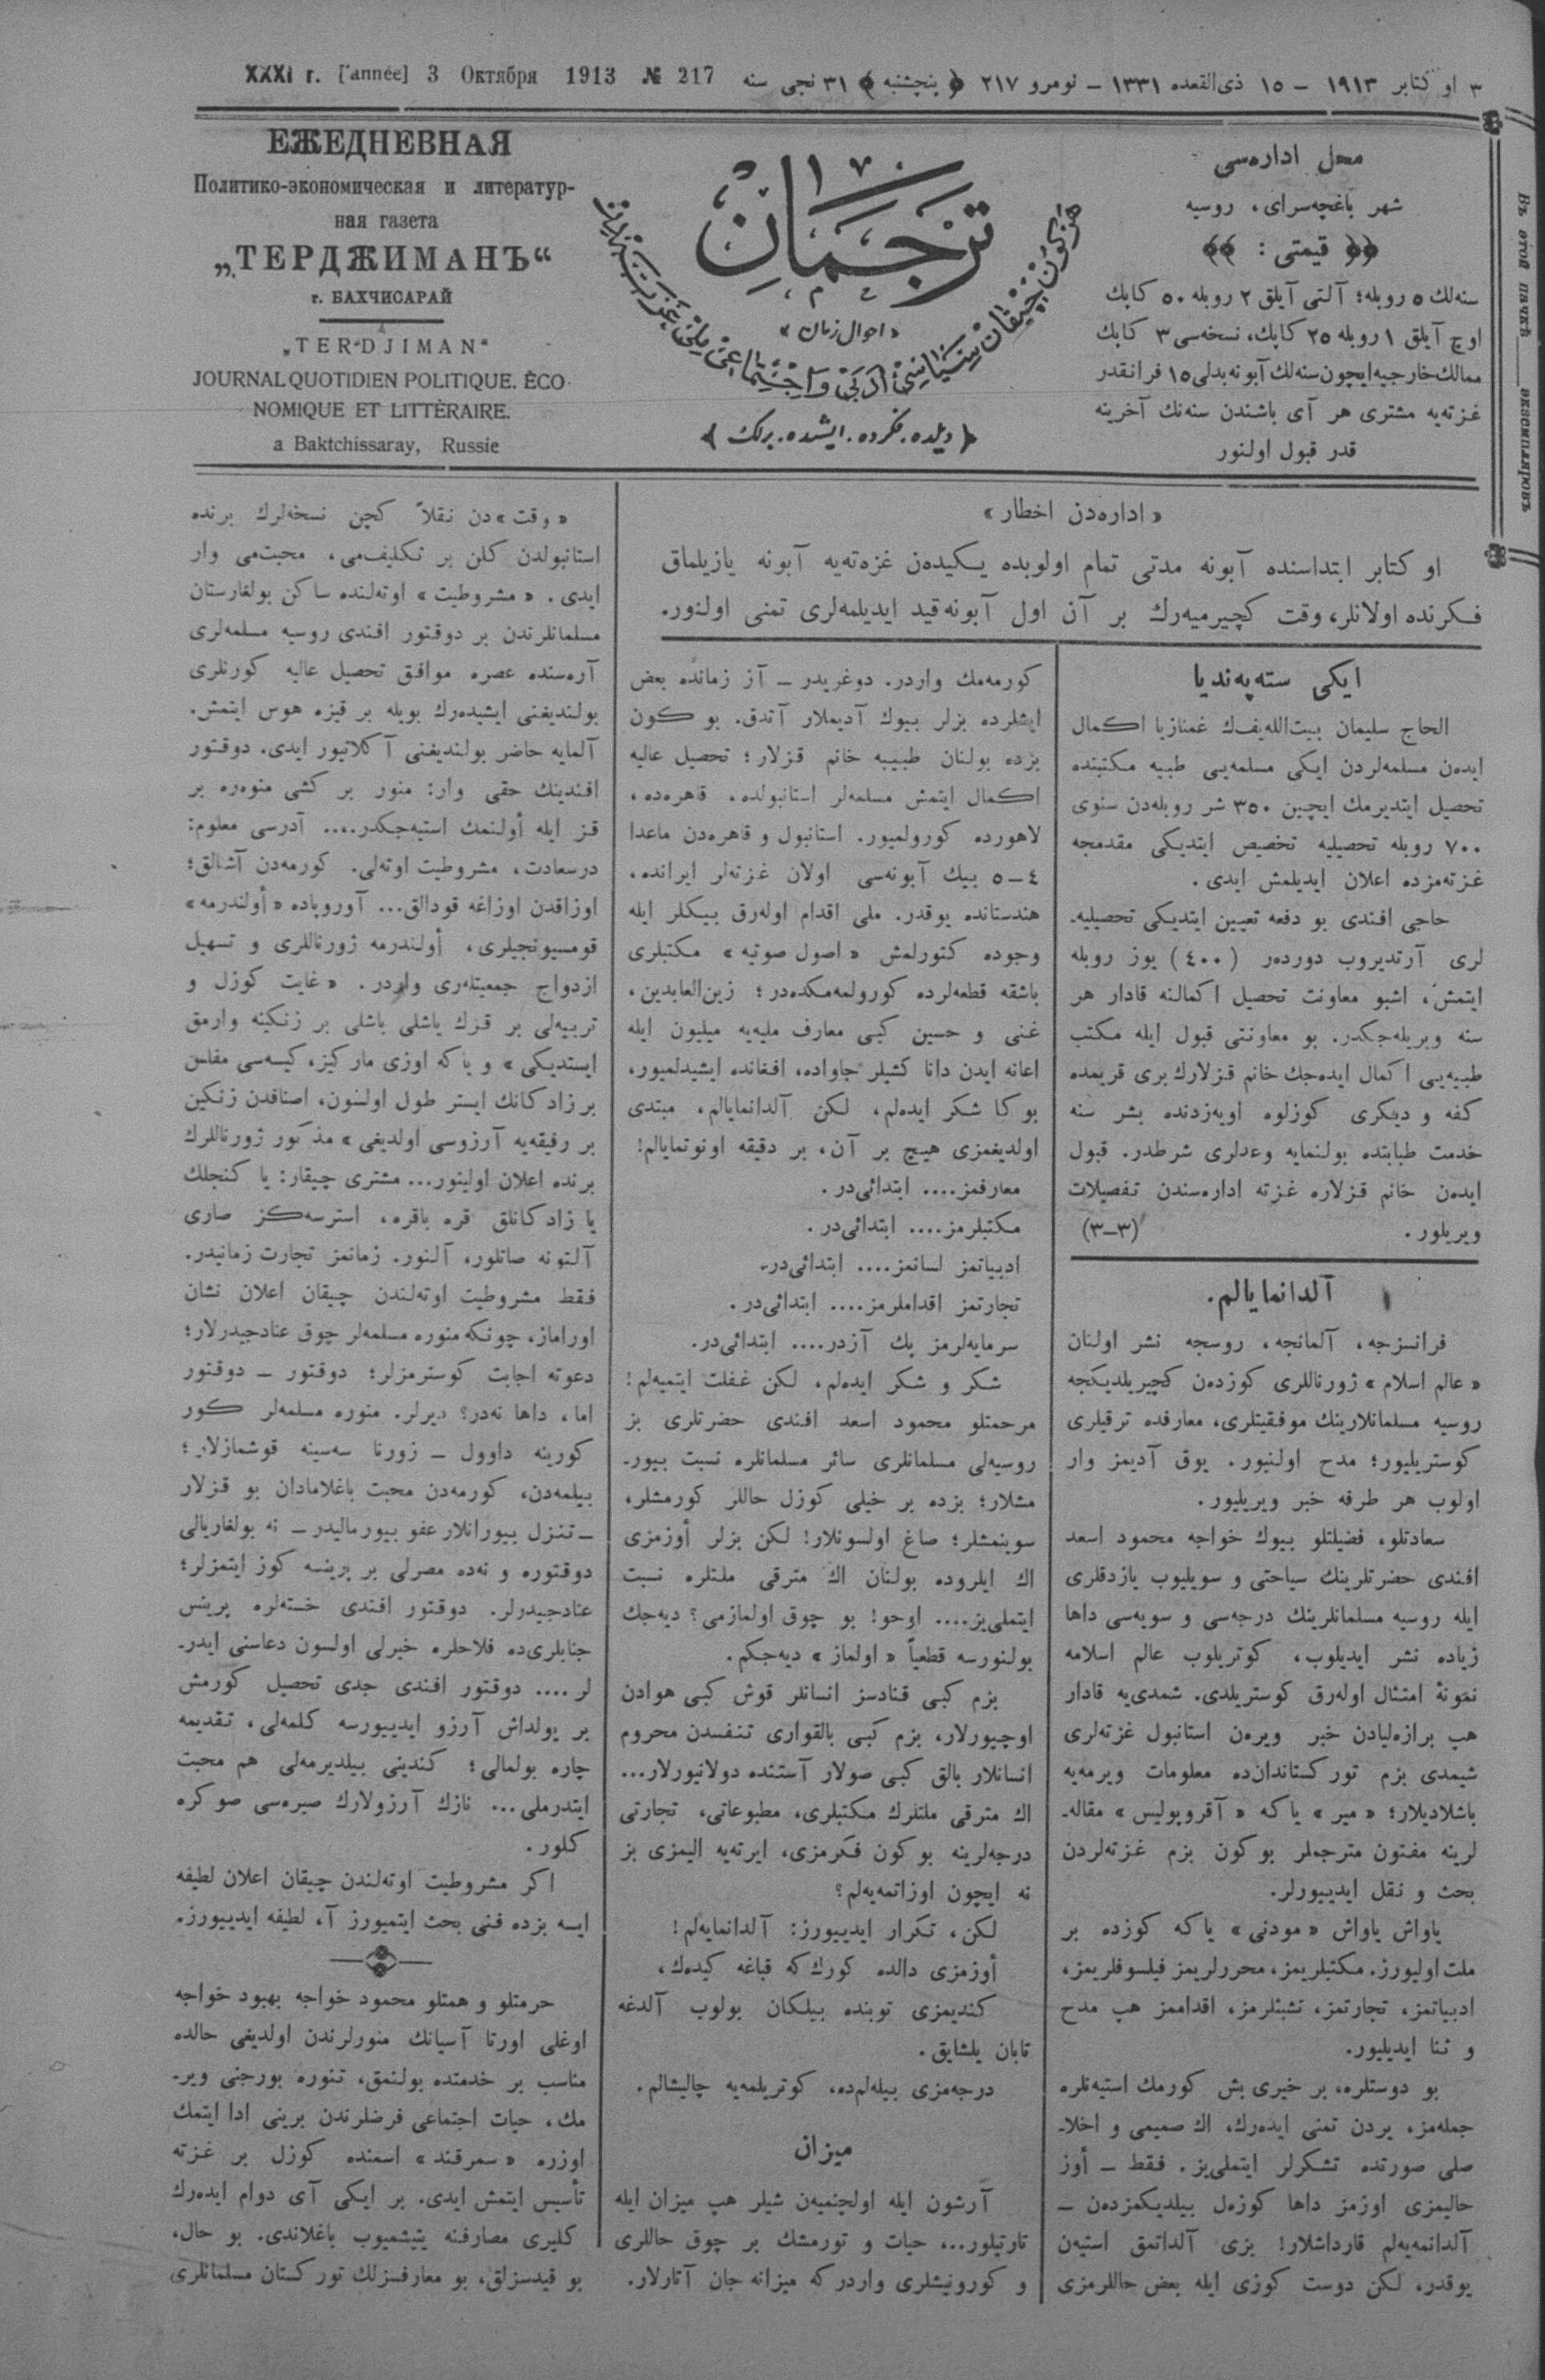 XXXI г. [année] 3 Октября 1913 № 217
٣ اوكتابر ١٩١٣ – ١٥ ذی‌القعده ١٣٣١ – نومرو ٢١٧ ﴿ پنچشنبه ﴾ ٣١ نجی سنه
ЕЖЕДНЕВНАЯ
Политико-экономическая и литератур-
ная газета
„ТЕРДЖИМАНЪ“
г. БАХЧИСАРАЙ
„TERDJIMAN“
JOURNAL QUOTIDIEN POLITIQUE. ÈCO-
NOMIQUE ET LITTÈRAIRE.
a Baktchissaray, Russie
ترجمان
« احوال زمان »
هر كون چیقان سیاسی، ادبی و اجتماعی ملی غزته
﴿ دیلده. فكرده. ایشده. برلك ﴾
محل اداره‌سی
شهر باغچه‌سرای، روسیه
﴾﴾ قیمتی : ﴿﴿
سنه‌لك ٥ روبله؛ آلتی آیلق ٢ روبله ٥٠ كاپك
اوچ آیلق ١ روبله ٢٥ كاپك، نسخه‌سی ٣ كاپك
ممالك خارجیه ایچون سنه‌لك آبونه بدلی ١٥ فرانقدر
غزته‌یه مشتری هر آی باشندن سنه‌نك آخرینه
قدر قبول اولنور
Въ этой пачкѣ экземпляровъ
« اداره‌دن اخطار »
اوكتابر ابتداسنده آبونه مدتی تمام اولوبده یكیدەن غزه‌ته‌یه آبونه یازیلماق
فكرنده اولانلر، وقت كچیرمیه‌رك بر آن اول آبونه قید ایدیلمه‌لری تمنی اولنور.
ایكی سته‌په‌ندیا
الحاج سلیمان بیت‌الله‌یف‌ك غمنازیا اكمال
ایده‌ن مسلمه‌لردن ایكی مسلمه‌یی طبیه مكتبنده
تحصیل ایتدیرمك ایچین ٣٥٠ شر روبله‌دن سنوی
٧٠٠ روبله تحصیلیه تخصیص ایتدیكی مقدمجه
غزته‌مزده اعلان ایدیلمش ایدی.
حاجی افندی بو دفعه تعیین ایتدیكی تحصیلیه‌-
لری آرتدیروب دورده‌ر (٤٠٠) یوز روبله
ایتمش، اشبو معاونت تحصیل اكمالنه قادار هر
سنه ویریله‌جكدر. بو معاونتی قبول ایله مكتب
طبیه‌یی اكمال ایده‌جك خانم قزلارك بری قریمده
كفه و دیكری كوزلوه اویه‌زدنده بشر سنه
خدمت طبابتده بولنمایه وعدلری شرطدر. قبول
ایده‌ن خانم قزلاره غزته اداره‌سندن تفصیلات
ویریلور. (٣–٣)
آلدانمایالم.
فرانسزجه، آلمانجه، روسجه نشر اولنان
« عالم اسلام » ژورناللری كوزدەن كچیریلدیكجه
روسیه مسلمانلارینك موفقیتلری، معارفده ترقیلری
كوستریلیور؛ مدح اولنیور. یوق آدیمز وار
اولوب هر طرفه خبر ویریلیور.
سعادتلو، فضیلتلو بیوك خواجه محمود اسعد
افندی حضرتلرینك سیاحتی و سویلیوب یازدقلری
ایله روسیه مسلمانلرینك درجه‌سی و سویه‌سی داها
زیاده نشر ایدیلوب، كوتریلوب عالم اسلامه
نمونهٔ امتثال اوله‌رق كوستریلدی. شمدی‌یه قادار
هپ برازه‌لیادن خبر ویره‌ن استانبول غزته‌لری
شیمدی بزم توركستاندان‌ده معلومات ویرمه‌یه
باشلادیلار؛ « میر » یاكه « آقروپولیس » مقاله‌-
لرینه مفتون مترجملر بوكون بزم غزته‌لردن
بحث و نقل ایدییورلر.
یاواش یاواش « مودنی » یاكه كوزده بر
ملت اولیورز. مكتبلریمز، محررلریمز فیلسوفلریمز،
ادبیاتمز، تجارتمز، تشبثلرمز، اقداممز هپ مدح
و ثنا ایدیلیور.
بو دوستلره، بر خیری بش كورمك استیه‌نلره
جمله‌مز، یردن تمنی ایده‌رك، اك صمیمی و اخلا-
صلی صورتده تشكرلر ایتملی‌یز. فقط – أوز
حالیمزی اوزمز داها كوزه‌ل بیلدیكمزدەن –
آلدانمه‌یه‌لم قارداشلار! بزی آلداتمق استیه‌ن
یوقدر، لكن دوست كوزی ایله بعض حاللرمزی
كورمه‌مك واردر. دوغریدر – آز زمانده بعض
ایشلرده بزلر بیوك آدیملار آتدق. بو كون
بزده بولنان طبیبه خانم قزلار؛ تحصیل عالیه
اكمال ایتمش مسلمه‌لر استانبولده، قاهره‌ده،
لاهورده كورولمیور. استانبول و قاهره‌دن ماعدا
٤–٥ بیك آبونه‌سی اولان غزته‌لر ایرانده،
هندستانده یوقدر. ملی اقدام اوله‌رق بیكلر ایله
وجوده كتورلمش « اصول صوتیه » مكتبلری
باشقه قطعه‌لرده كورولمه‌مكده‌در؛ زین‌العابدین،
غنی و حسین كبی معارف ملیه‌یه میلیون ایله
اعانه ایدن دانا كشیلر جاواده، افغانده ایشیدلمیور،
بوكا شكر ایده‌لم، لكن آلدانمایالم، مبتدی
اولدیغمزی هیچ بر آن، بر دقیقه اونوتمایالم!
معارفمز.... ابتدائی‌در.
مكتبلرمز.... ابتدائی‌در.
ادبیاتمز لسانمز.... ابتدائی‌در.
تجارتمز اقداملرمز.... ابتدائی‌در.
سرمایه‌لرمز پك آزدر.... ابتدائی‌در.
شكر و شكر ایده‌لم، لكن غفلت ایتمیه‌لم!
مرحمتلو محمود اسعد افندی حضرتلری بز
روسیه‌لی مسلمانلری سائر مسلمانلره نسبت بیور-
مشلار؛ بزده بر خیلی كوزل حاللر كورمشلر،
سوینمشلر؛ صاغ اولسونلار! لكن بزلر أوزمزی
اك ایلروده بولنان اك مترقی ملتلره نسبت
ایتملی‌یز.... اوحو! بو چوق اولمازمی؟ دیه‌جك
بولنورسه قطعیاً « اولماز » دیه‌جكم.
بزم كبی قنادسز انسانلر قوش كبی هوادن
اوچیورلار، بزم كبی بالقواری تنفسدن محروم
انسانلار بالق كبی صولار آستنده دولانیورلار...
اك مترقی ملتلرك مكتبلری، مطبوعاتی، تجارتی
درجه‌لرینه بوكون فكرمزی، ایرته‌یه الیمزی بز
نه ایچون اوزاتمه‌یه‌لم؟
لكن، تكرار ایدییورز: آلدانمایه‌لم!
أوزمزی دالده كورك‌كه قباغه كیده‌ك،
كندیمزی توبنده بیلكان بولوب آلدغه
تابان یلشایق.
درجه‌مزی بیله‌لم‌ده، كوتریلمه‌یه چالیشالم.
میزان
آرشون ایله اولچنمیه‌ن شیلر هپ میزان ایله
تارتیلور... حیات و تورمشك بر چوق حاللری
و كورونیشلری واردركه میزانه جان آتارلار.
« وقت »دن نقلاً كچن نسخه‌لرك برنده
استانبولدن كلن بر تكلیف‌می، محبت‌می وار
ایدی. « مشروطیت » اوته‌لنده ساكن بولغارستان
مسلمانلرندن بر دوقتور افندی روسیه مسلمه‌لری
آره‌سنده عصره موافق تحصیل عالیه كورنلری
بولندیغنی ایشیده‌رك بویله بر قیزه هوس ایتمش.
آلمایه حاضر بولندیغنی آكلاتیور ایدی. دوقتور
افندینك حقی وار: منور بر كشی منوره بر
قز ایله أولنمك استیه‌جكدر.... آدرسی معلوم:
درسعادت، مشروطیت اوته‌لی. كورمه‌دن آشالق؛
اوزاقدن اوزاغه قودالق... آوروپاده « أولندرمه »
قومسیونجیلری، أولندرمه ژورناللری و تسهیل
ازدواج جمعیتله‌ری واردر. « غایت كوزل و
تربیه‌لی بر قزك یاشلی باشلی بر زنكینه وارمق
ایستدیكی » و یاكه اوزی ماركیز، كیسه‌سی مفلس
بر زادكانك ایستر طول اولسون، اصنافدن زنكین
بر رفیقه‌یه آرزوسی اولدیغی » مذكور ژورناللرك
برنده اعلان اولینور... مشتری چیقار: یا كنجلك
یا زادكانلق قره باقره، استرسه‌كز صاری
آلتونه صاتلور، آلنور. زمانمز تجارت زمانیدر.
فقط مشروطیت اوته‌لندن چیقان اعلان نشان
اوراماز، چونكه منوره مسلمه‌لر چوق عنادجیدرلار؛
دعوته اجابت كوسترمزلر؛ دوقتور – دوقتور
اما، داها نه‌در؟ دیرلر. منوره مسلمه‌لر كور
كورینه داوول – زورنا سه‌سینه قوشمازلار؛
بیلمه‌دن، كورمه‌دن محبت باغلامادان بو قزلار
– تنزل بیورانلار عفو بیورمالیدر – نه بولغاریالی
دوقتوره و نه‌ده مصرلی بر پرینسه كوز ایتمزلر؛
عنادجیدرلر. دوقتور افندی خسته‌لره پرینس
جنابلری‌ده فلاحلره خیرلی اولسون دعاسنی ایدر-
لر.... دوقتور افندی جدی تحصیل كورمش
بر یولداش آرزو ایدییورسه كلمه‌لی، تقدیمه
چاره بولمالی؛ كندینی بیلدیرمه‌لی هم محبت
ایتدرملی... نازك آرزولارك صبره‌سی صوكره
كلور.
اكر مشروطیت اوته‌لندن چیقان اعلان لطیفه
ایسه بزده فنی بحث ایتمیورز آ، لطیفه ایدییورز.
حرمتلو و همتلو محمود خواجه بهبود خواجه
اوغلی اورتا آسیانك منورلرندن اولدیغی حالده
مناسب بر خدمتده بولنمق، تنوره بورجنی ویر-
مك، حیات اجتماعی فرضلرندن برینی ادا ایتمك
اوزره « سمرقند » اسمنده كوزل بر غزته
تأسیس ایتمش ایدی. بر ایكی آی دوام ایده‌رك
كلیری مصارفنه یتیشمیوب باغلاندی. بو حال،
بو قیدسزلق، بو معارفسزلك توركستان مسلمانلری